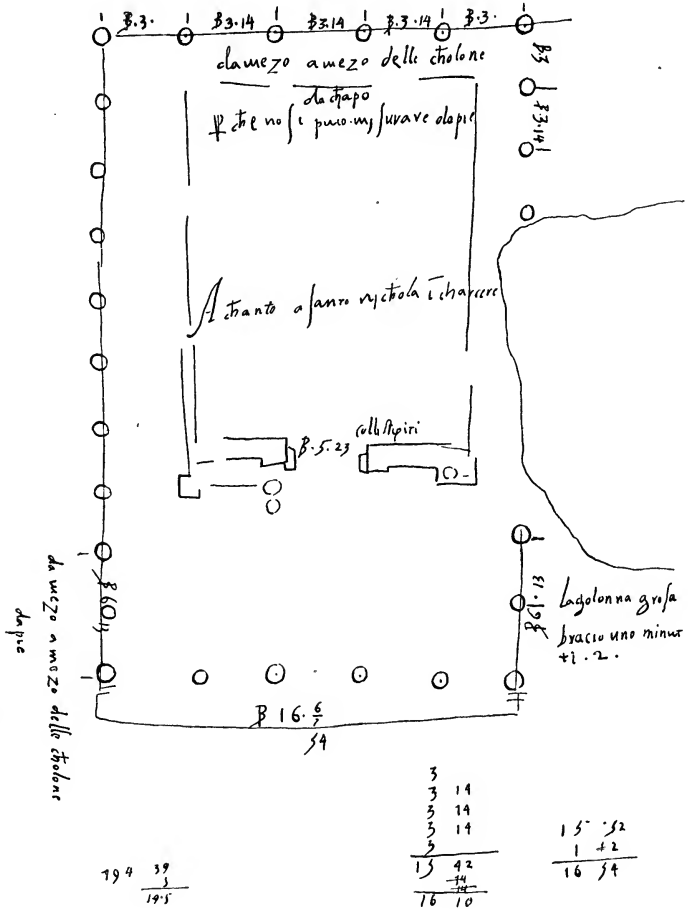 β.3. β3.14 β3.14 β.3.14 β.3.
damezo amezo delle cholone
da chapo
che no si puo.misurare dapie
β.3
β3.14
A chanto a santo nichola i charcere
β.5.23
colli
β60
da mezo a mezo delle cholone
dapie
β19.
Lacolonna grosa
bracio uno minut
ti.2.
β 16.6
54
3
3 14
3 14
3 14
3
15 42
16 10
15 52
1 2
16 54
194 39
19.5